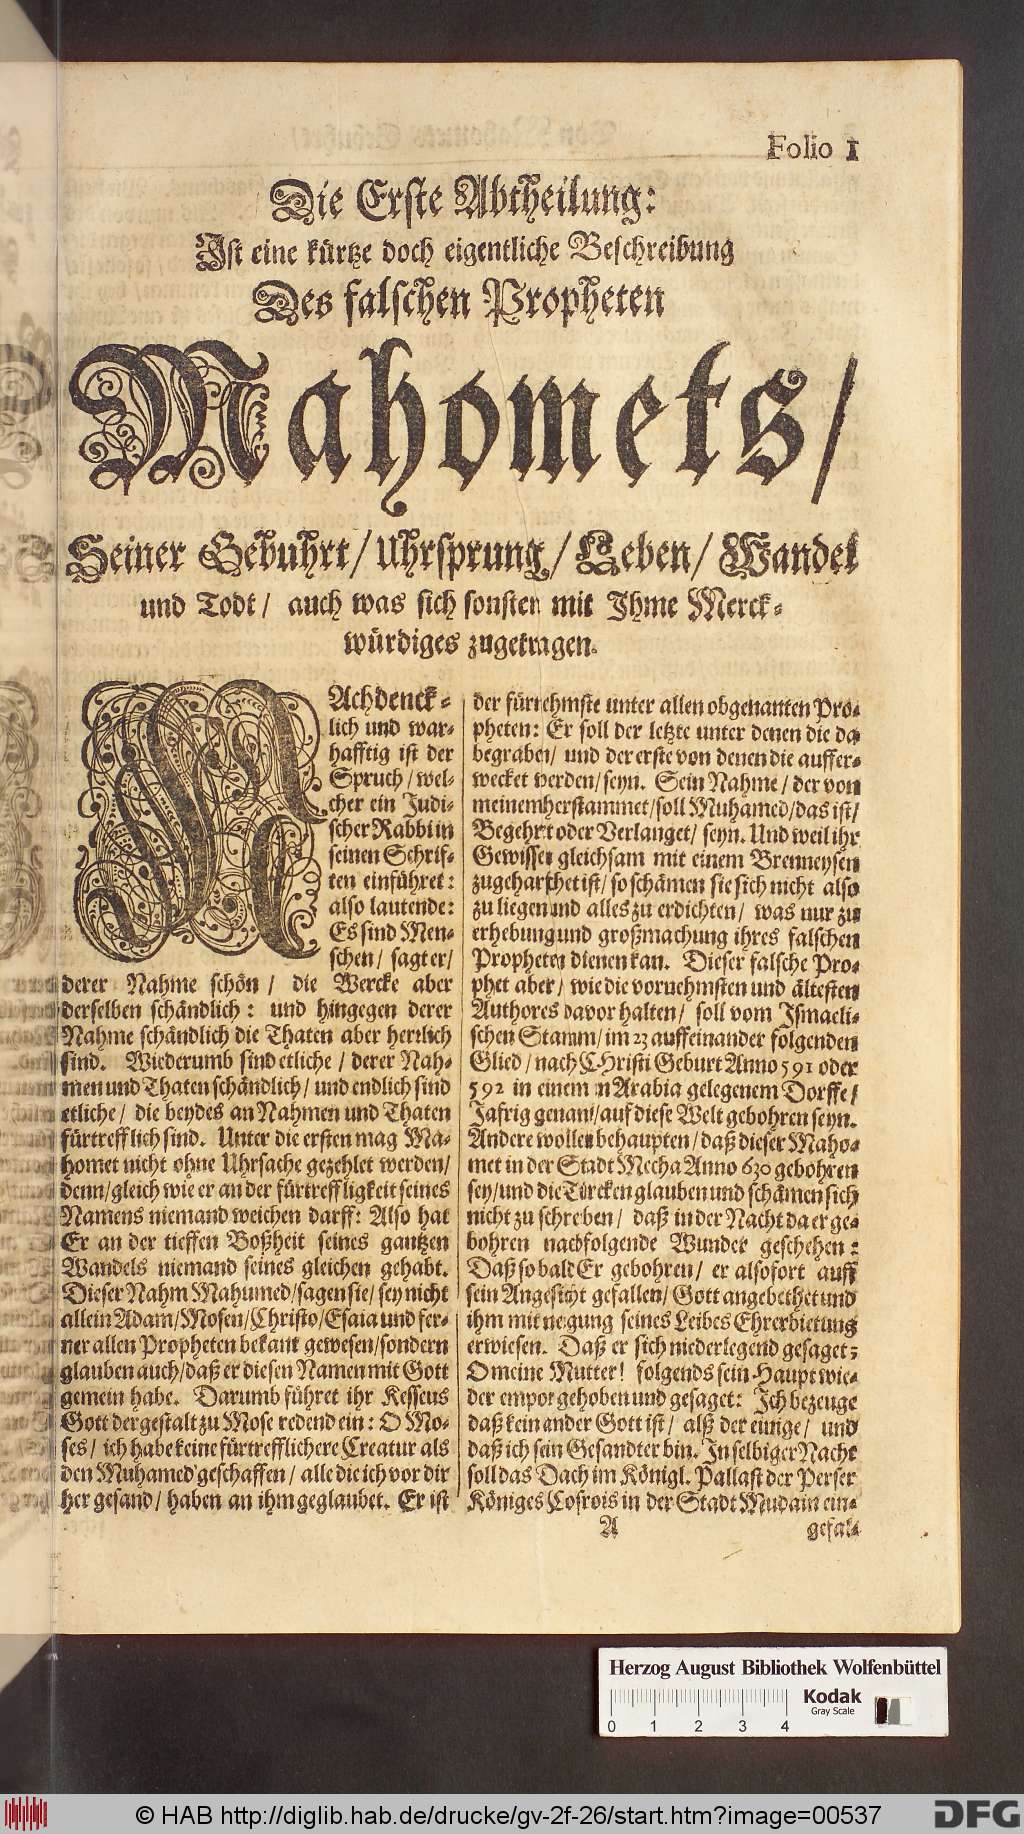 Folio 1
Die Erste Abtheilung:
Ist eine kürtze doch eigentliche Beschreibung
Des falschen Propheten
Mahomets/
Seiner Gebuhrt/ Uhrsprung/ Leben/ Wandel
und Todt/ auch was sich sonsten mit Ihme Merck-
würdiges zugetragen.
NAchdenck-
lich und war-
hafftig ist der
Spruch/ wel-
cher ein Judi-
scher Rabbi in
seinen Schrif-
ten einführet:
also lautende:
Es sind Men-
schen/ sagt er/
derer Nahme schön/ die Wercke aber
derselben schändlich: und hingegen derer
Nahme schändlich die Thaten aber herrlich
sind. Wiederumb sind etliche/ derer Nah-
men und Thaten schändlich/ und endlich sind
etliche/ die beydes an Nahmen und Thaten
fürtrefflich sind. Unter die ersten mag Ma-
homet nicht ohne Uhrsache gezehlet werden/
denn/ gleich wie er an der fürtreffligkeit seines
Namens niemand weichen darff: Also hat
Er an der tieffen Boßheit seines gantzen
Wandels niemand seines gleichen gehabt.
Dieser Nahm Mahumed/ sagen sie/ sey nicht
allein Adam/ Mosen/ Christo/ Esaia und fer-
ner allen Propheten bekant gewesen/ sondern
glauben auch/ daß er diesen Namen mit Gott
gemein habe. Darumb führet ihr Kesseus
Gott dergestalt zu Mose redend ein: O Mo-
ses/ ich habe keine fürtrefflichere Creatur als
den Muhamed geschaffen/ alle die ich vor dir
her gesand/ haben an ihm geglaubet. Er ist
der fürnehmste unter allen obgenanten Pro-
pheten: Er soll der letzte unter denen die da
begraben/ und der erste von denen die auffer-
wecket werden/ seyn. Sein Nahme/ der von
meinem herstammet/ soll Muhamed/ das ist/
Begehrt oder Verlanget/ seyn. Und weil ihr
Gewissen gleichsam mit einem Brenneysen
zugeharschet ist/ so schämen sie sich nicht also
zu liegen und alles zu erdichten/ was nur zu
erhebung und großmachung ihres falschen
Propheten dienen kan. Dieser falsche Pro-
phet aber/ wie die vornehmsten und ältesten
Authores davor halten/ soll vom Ismaeli-
schen Stamm/ im 23 auffeinander folgenden
Glied/ nach Christi Geburt Anno 591 oder
592 in einem in Arabia gelegenem Dorffe/
Jafrig genant/ auf diese Welt gebohren seyn.
Andere wollen behaupten/ daß dieser Maho-
met in der Stadt Mecha Anno 630 gebohren
sey/ und die Türcken glauben und schämen sich
nicht zu schreiben/ daß in der Nacht da er ge-
bohren nachfolgende Wunder geschehen:
Daß so bald Er gebohren/ er alsofort auff
sein Angesicht gefallen/ Gott angebethet und
ihm mit neigung seines Leibes Ehrerbietung
erwiesen. Daß er sich niederlegend gesaget;
O meine Mutter! folgends sein Haupt wie-
der empor gehoben und gesaget: Ich bezeuge
daß kein ander Gott ist/ alß der einige/ und
daß ich sein Gesandter bin. In selbiger Nacht
soll das Dach im Königl. Pallast der Perser
Königes Cosrois in der Stadt Mudain ein-
A gefal-
Herzog August Bibliothek Wolfenbüttel
Kodak
Gray Scale
0 1 2 3 4
© HAB http://diglib.hab.de/drucke/gv-2f-26/start.htm?image=00537
DFG